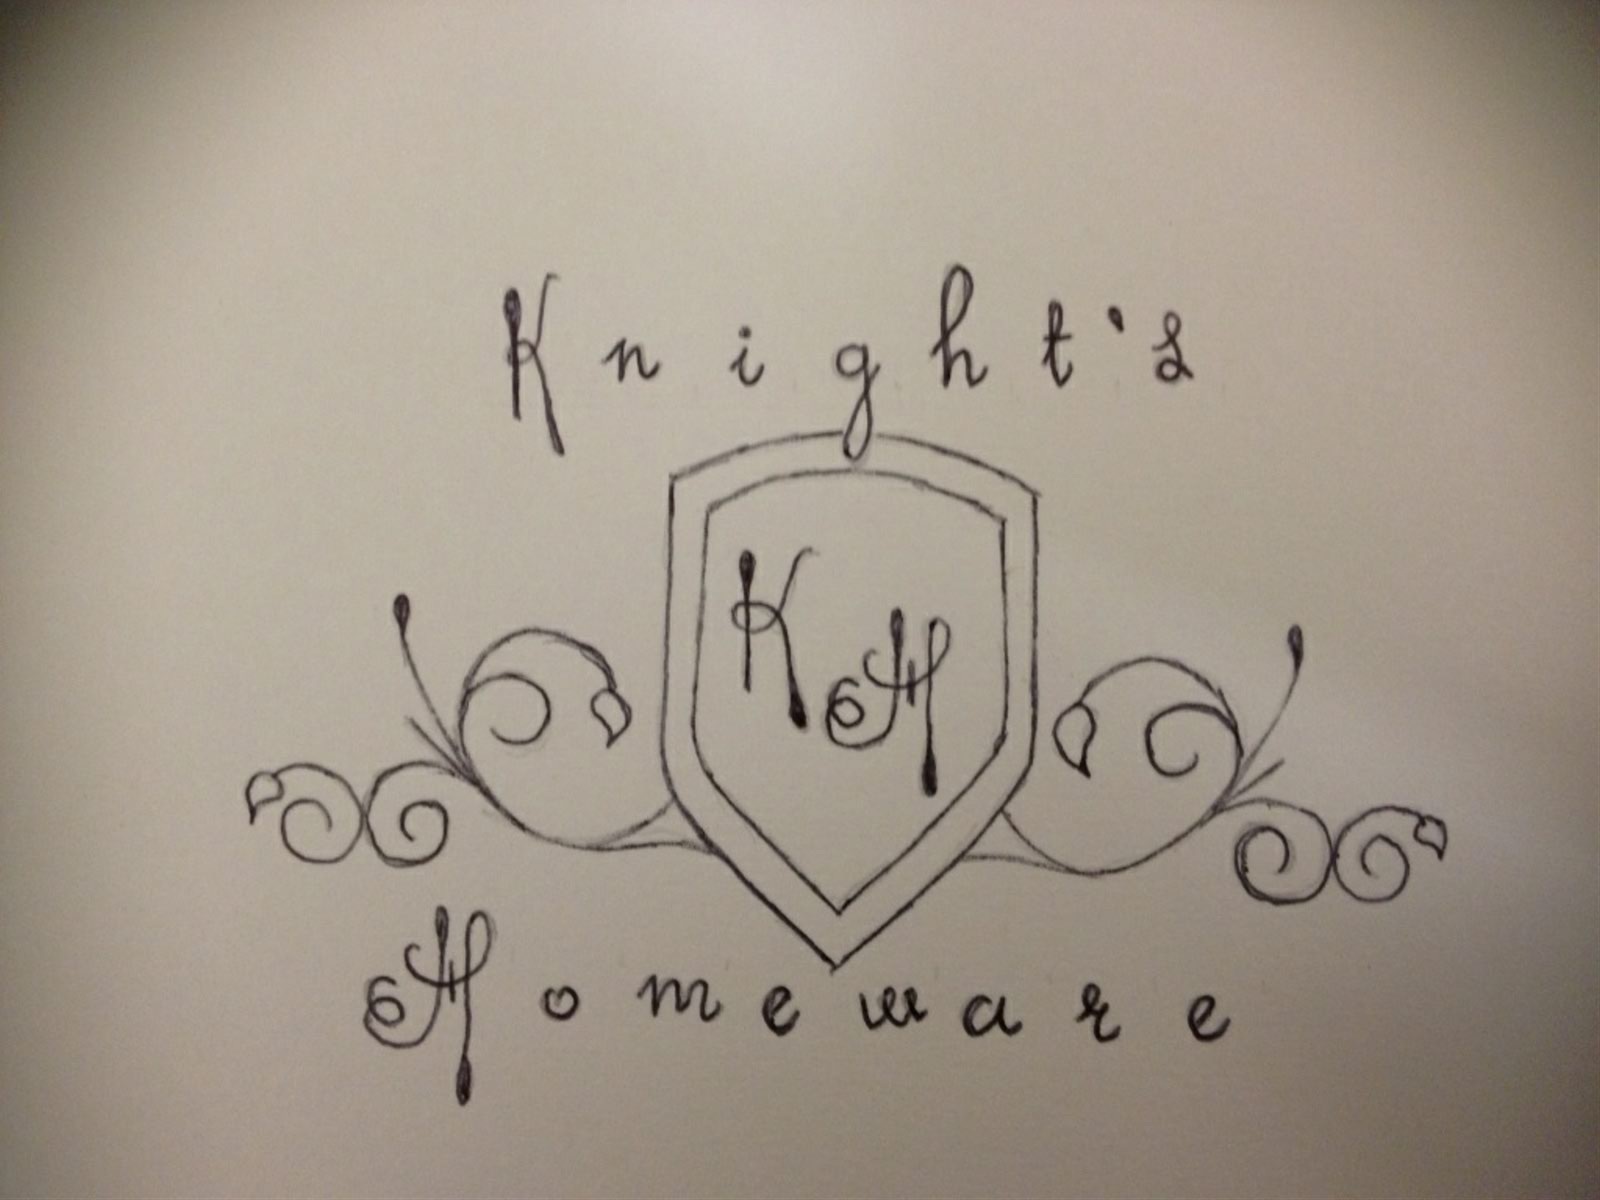 Knight's
K H
Homeware